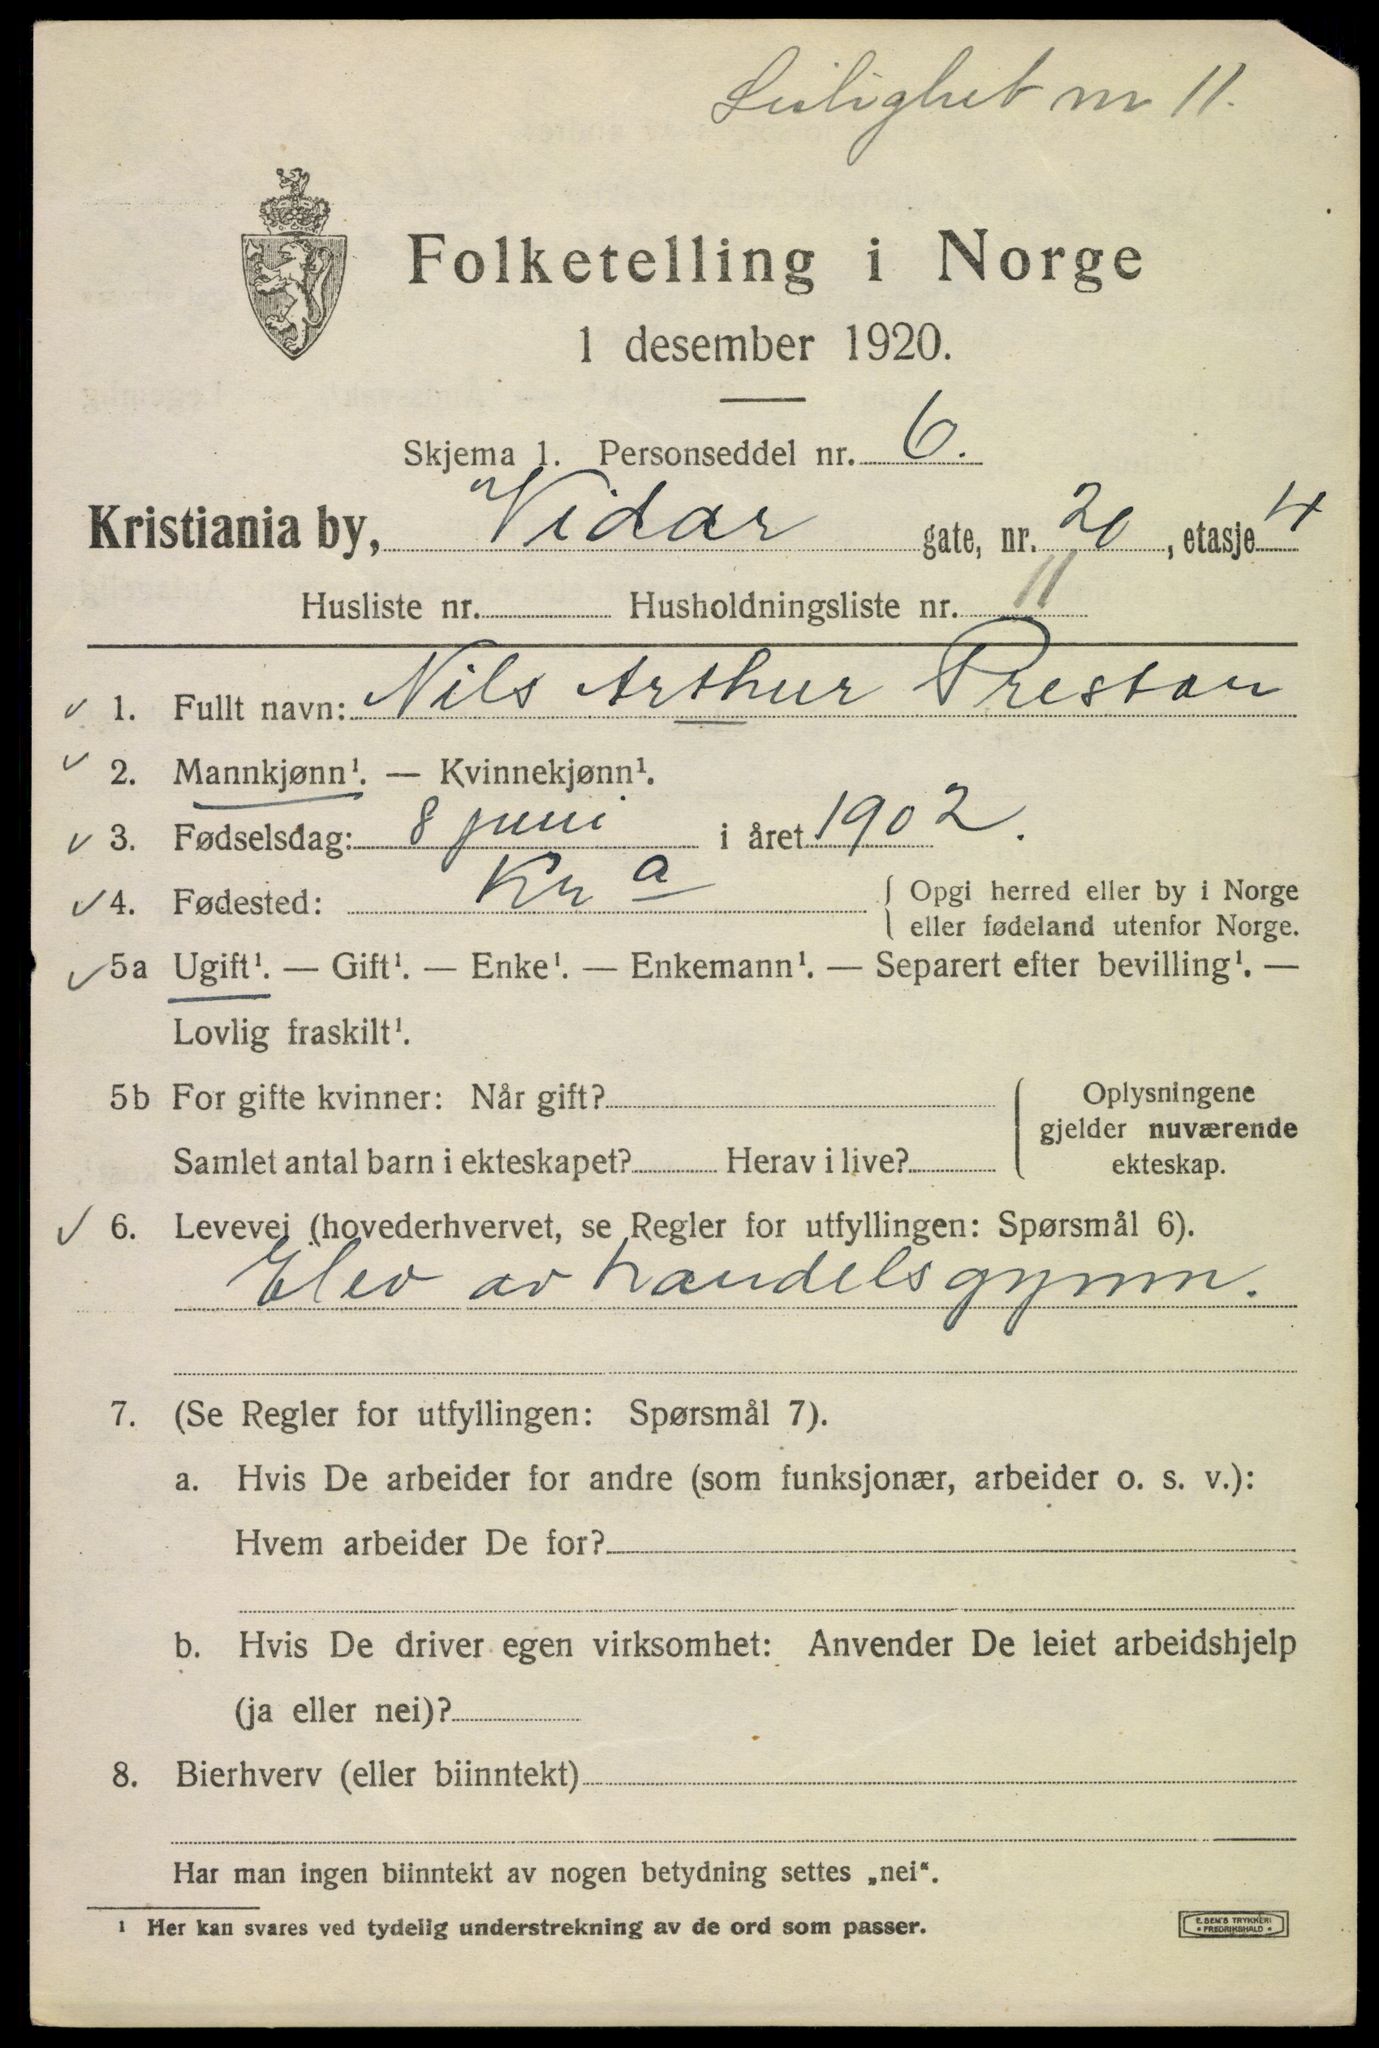 Leilighet nr 11.
Folketelling i Norge
1 desember 1920.
Skjema 1. Personseddel nr. 6.
Kristiania by, Vidar gate, nr. 20, etasje 4
Husliste nr. Husholdningsliste nr. 11
1. Fullt navn: Nils Arthur Prestau
2. Mannkjønn¹. — Kvinnekjønn¹.
3. Fødselsdag: 8 juni i året 1902.
4. Fødested: Kra { Opgi herred eller by i Norge
eller fødeland utenfor Norge.
5a Ugift¹. — Gift¹. — Enke¹. — Enkemann¹. — Separert efter bevilling¹. —
Lovlig fraskilt¹.
5b For gifte kvinner: Når gift?
Samlet antal barn i ekteskapet? Herav i live?
Oplysningene
gjelder nuværende
ekteskap.
6. Levevei (hovederhvervet, se Regler for utfyllingen: Spørsmål 6).
Elev av handelsgymn.
7. (Se Regler for utfyllingen: Spørsmål 7).
a. Hvis De arbeider for andre (som funksjonær, arbeider o. s. v.):
Hvem arbeider De for?
b. Hvis De driver egen virksomhet: Anvender De leiet arbeidshjelp
(ja eller nei)?
8. Bierhverv (eller biinntekt)
Har man ingen biinntekt av nogen betydning settes „nei“.
¹ Her kan svares ved tydelig understrekning av de ord som passer.
E. SEM'S TRYKKERI
* FREDRIKSHALD *